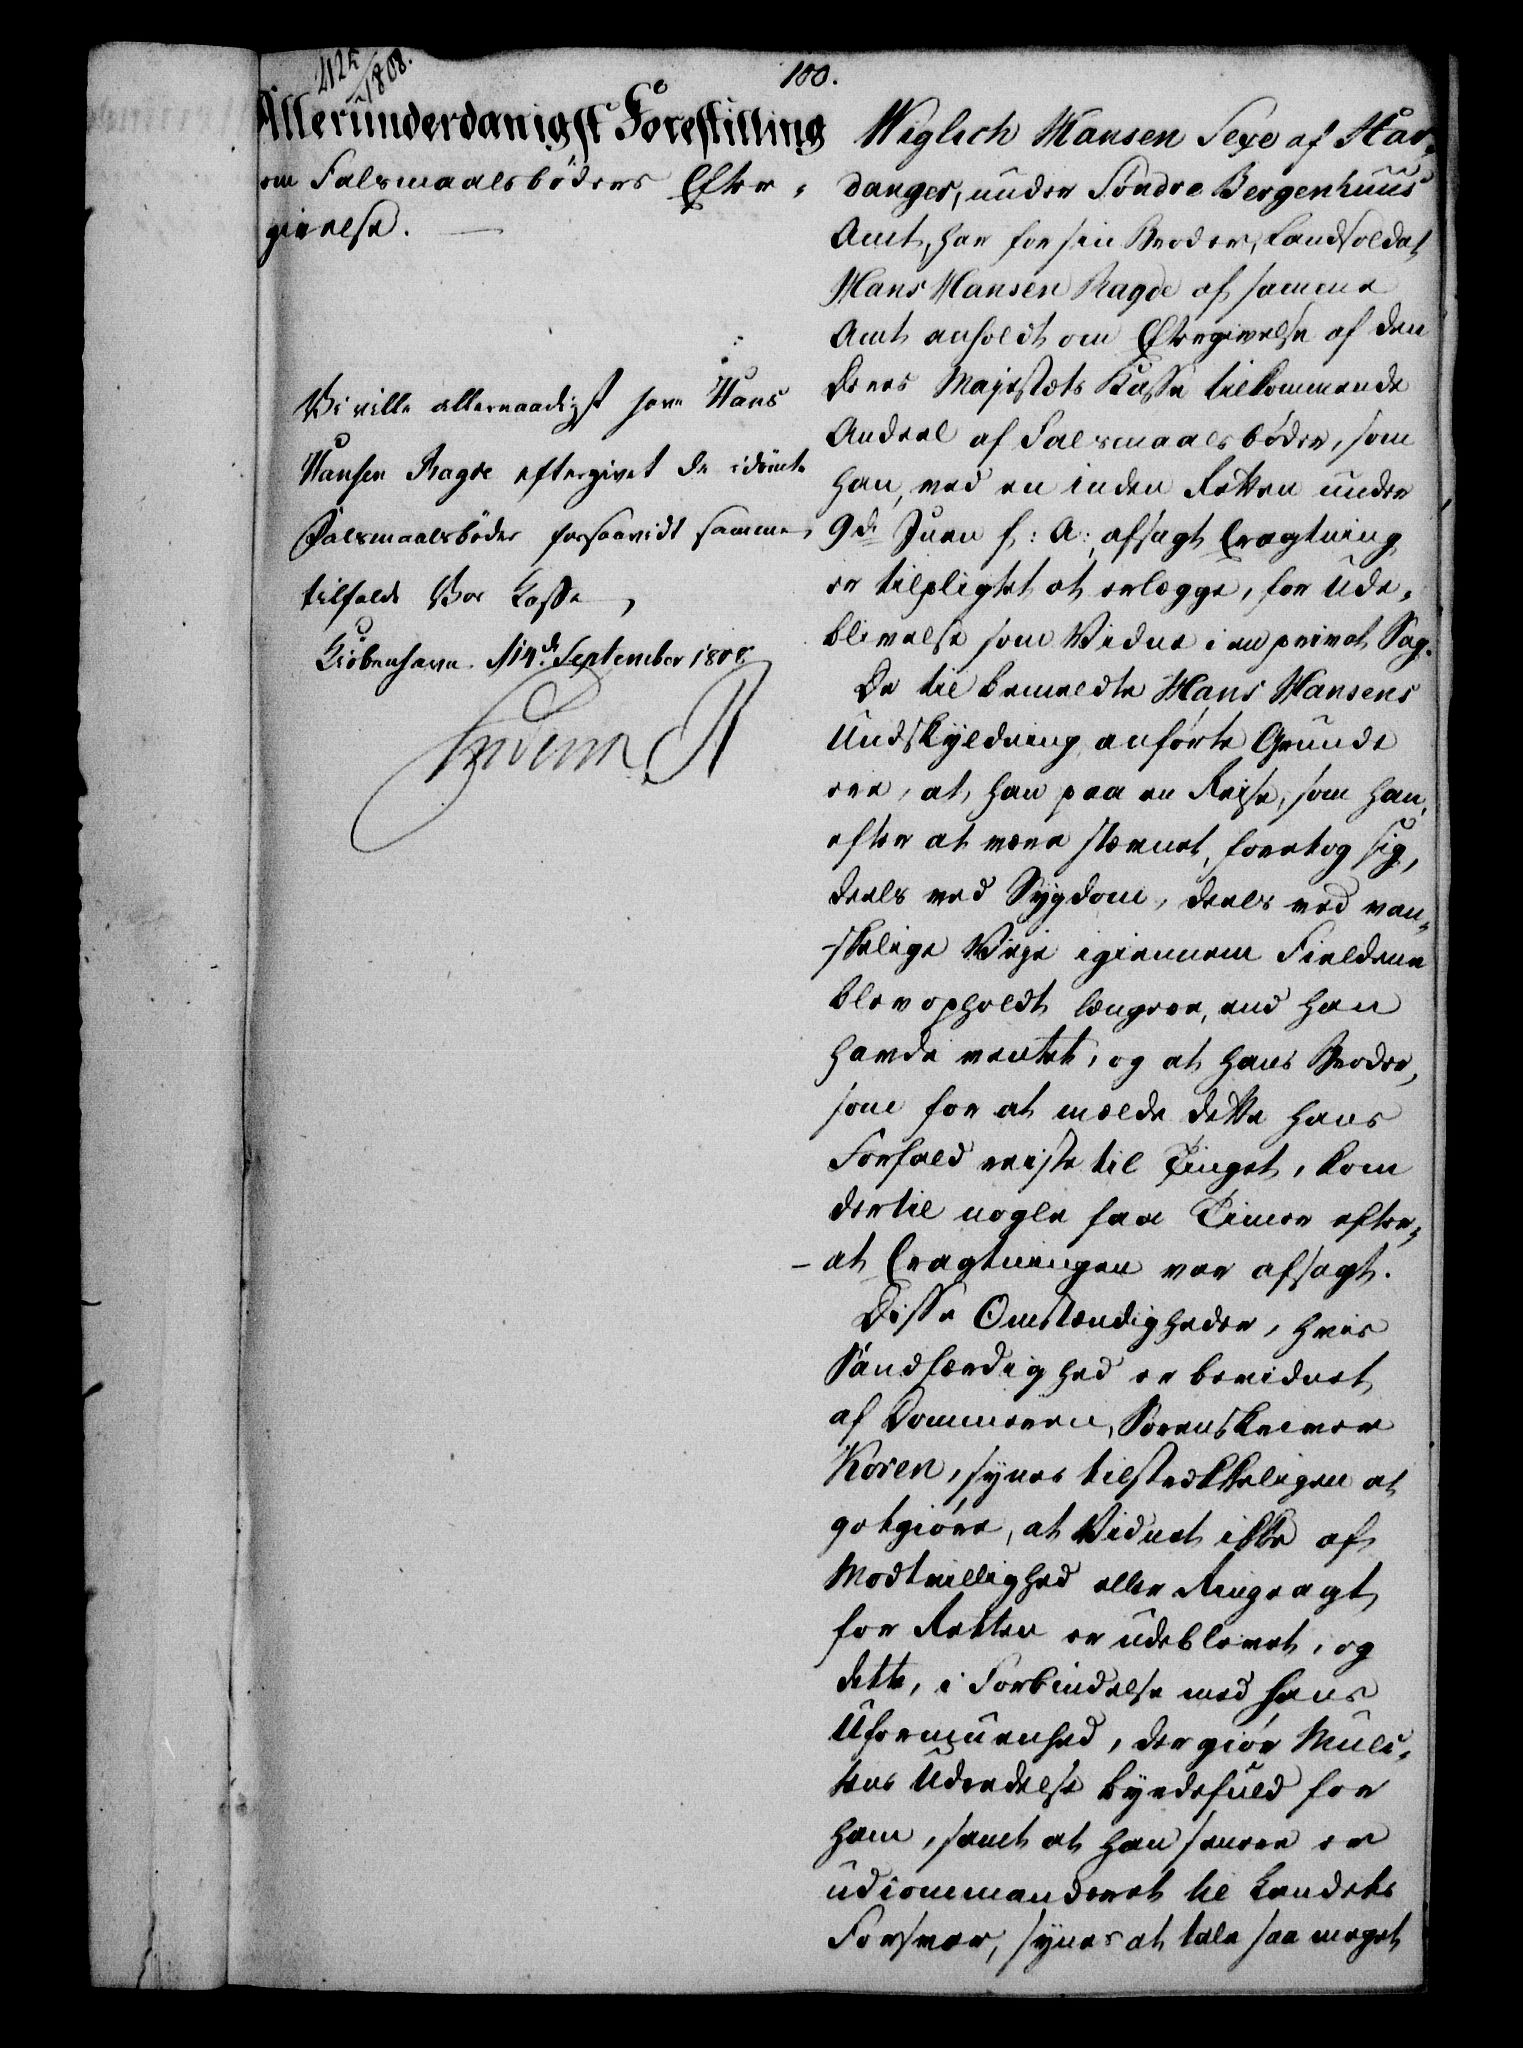 425/1808.
100.
Allerunderdanigst Forestilling
om Falsmaalsbøders Efter-
givelse.
Vi ville allernaadigst have Hans
Hansen Ragde eftergivet de idømte
Falsmaalsbøder forsaavidt samme
tilfalde Vor Kasse,
Kiöbenhavn d 14de September 1808.
Frederik R
Wiglich Hansen Sexe af Har-
danger, under Søndre Bergenhuus
Amt, har for sin Broder, Landsoldat
Hans Hansen Ragde af samme
Amt anholdt om Eftergivelse af den
Deres Majestæts Kasse tilkommende
Andeel af Falsmaalsbøder, som
han, ved en inden Retten under
9de Juni f: A: afsagt Eragtning
er tilpligtet at erlægge, for Ude-
blivelse som Vidne i en privat Sag.
De til bemeldte Hans Hansens
Undskyldning anførte Grunde
ere, at han paa en Reise, som han,
efter at være stævnet, foretog sig,
deels ved Sygdom, deels ved van-
skelige Veje igiennem Fieldene
blev opholdt længere, end han
havde ventet, og at hans Broder,
som for at melde dette hans
Forfald reiste til Tinget, kom
dertil nogle faa Timer efter-
at Eragtningen var afsagt.
Disse Omstændigheder, hvis
Sandfærdighed er bevidnet
af Dommeren, Sorenskriver
Koren, synes tilstrækkeligen at
gotgiøre, at Vidnet ikke af
Modtvillighed eller Ringeagt
for Retten er udeblevet, og
dette, i Forbindelse med hans
Uformuenhed, der giør Mulc-
tens Udredelse byrdefuld for
ham, samt at han senere er
udcommanderet til Landets
Forsvar, synes at tale saa meget